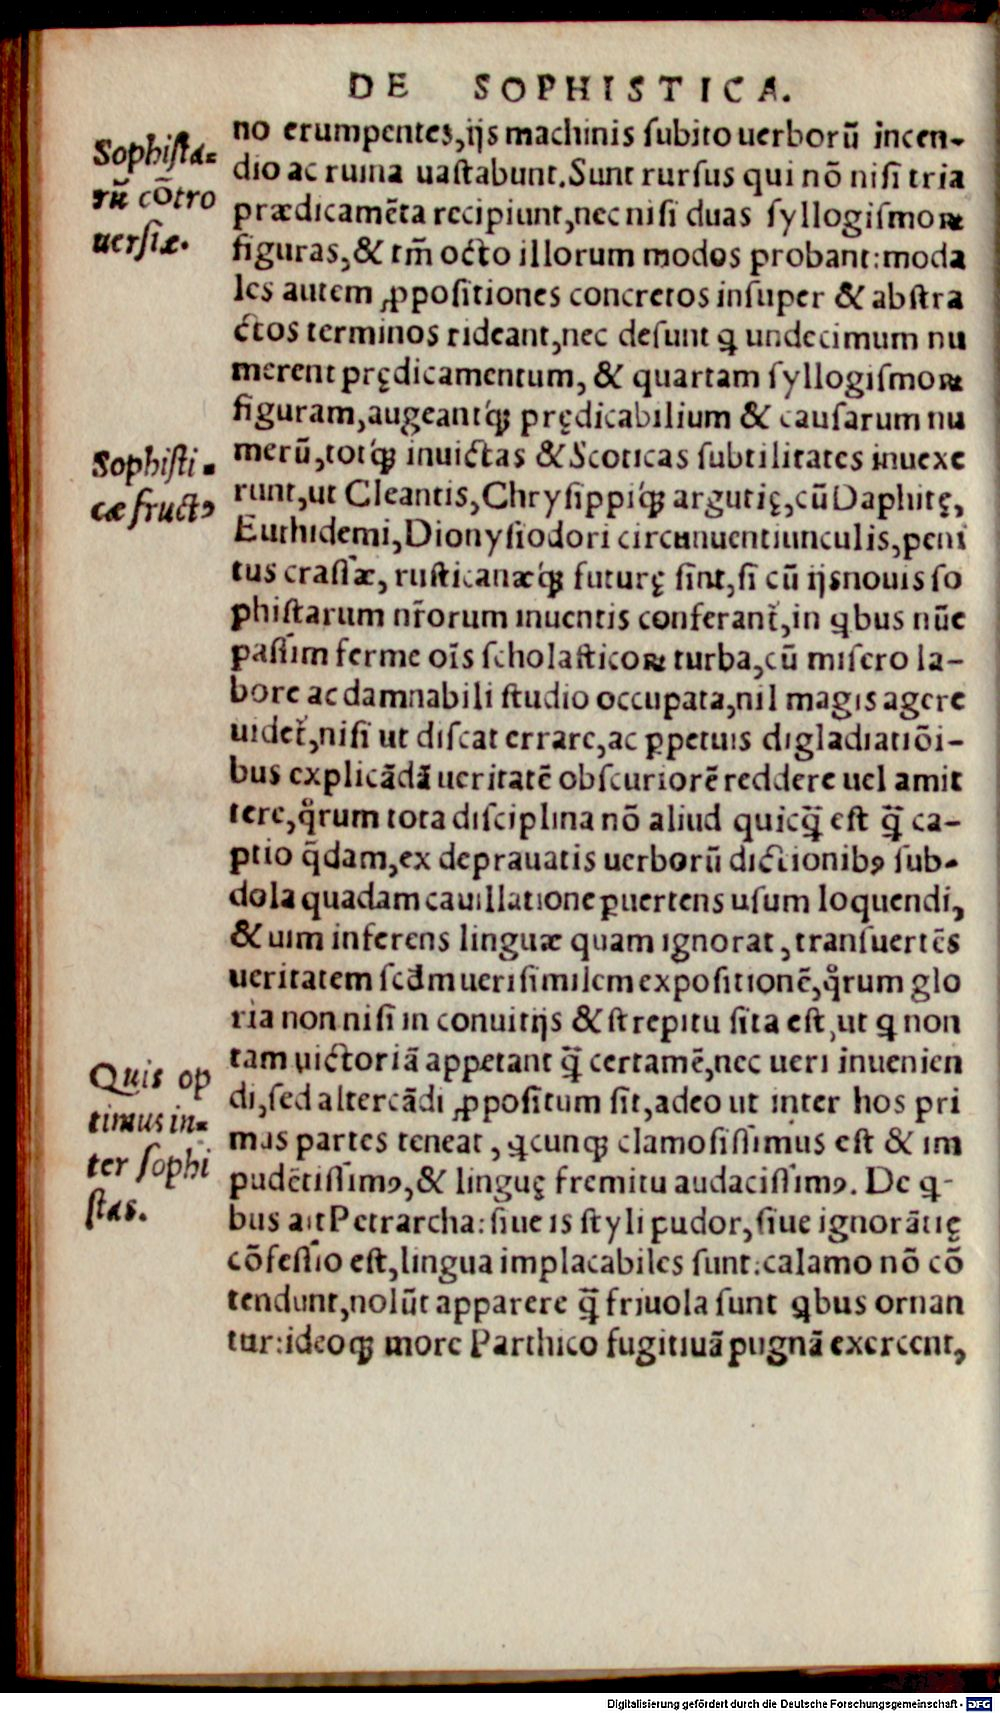 DE SOPHISTICA.
Sophista-
rū cōtro
uersiæ.
no erumpentes, ijs machinis subito uerborū incen-
dio ac ruina uastabunt. Sunt rursus qui nō nisi tria
prædicamēta recipiunt, nec nisi duas syllogismoꝝ
figuras, & tm̄ octo illorum modos probant: moda
les autem ꝓpositiones concretos insuper & abstra
ctos terminos rideant, nec desunt ꝗ undecimum nu
merent prędicamentum, & quartam syllogismoꝝ
figuram, augeantq́ꝫ prędicabilium & causarum nu
Sophisti-
cæ fructꝰ
merū, totq́ꝫ inuictas & Scoticas subtilitates inuexe
runt, ut Cleantis, Chrysippiq́ꝫ argutię, cū Daphitę,
Euthidemi, Dionysiodori circumuentiunculis, peni
tus crassæ, rusticanæq́ꝫ futurę sint, si cū ijs nouis so
phistarum nr̄orum inuentis conferant᷑, in ꝗbus nūc
passim ferme oīs scholasticoꝝ turba, cū misero la-
bore ac damnabili studio occupata, nil magis agere
uidet᷑, nisi ut discat errare, ac ꝑpetuis digladiatiōi-
bus explicādā ueritatē obscuriorē reddere uel amit
tere, qͦrum tota disciplina nō aliud quicq̄ꝫ est q̄ꝫ ca-
ptio q̄dam, ex deprauatis uerborū dictionibꝰ sub-
dola quadam cauillatione ꝑuertens usum loquendi,
& uim inferens linguæ quam ignorat, transuertēs
ueritatem scd̄m uerisimilem expositionē, qͦrum glo
ria non nisi in conuitijs & strepitu sita est, ut ꝗ non
Quis op
timus in-
ter sophi
stas.
tam uictoriā appetant q̄ꝫ certamē, nec ueri inuenien
di, sed altercādi ꝓpositum sit, adeo ut inter hos pri
mas partes teneat, ꝗcunqꝫ clamosissimus est & im
pudētissimꝰ, & linguę fremitu audacissimꝰ. De ꝗ-
bus ait Petrarcha: siue is styli pudor, siue ignorātię
cōfessio est, lingua implacabiles sunt: calamo nō cō
tendunt, nolūt apparere q̄ꝫ friuola sunt ꝗbus ornan
tur: ideoqꝫ more Parthico fugitiuā pugnā exercent,
Digitalisierung gefördert durch die Deutsche Forschungsgemeinschaft - DFG